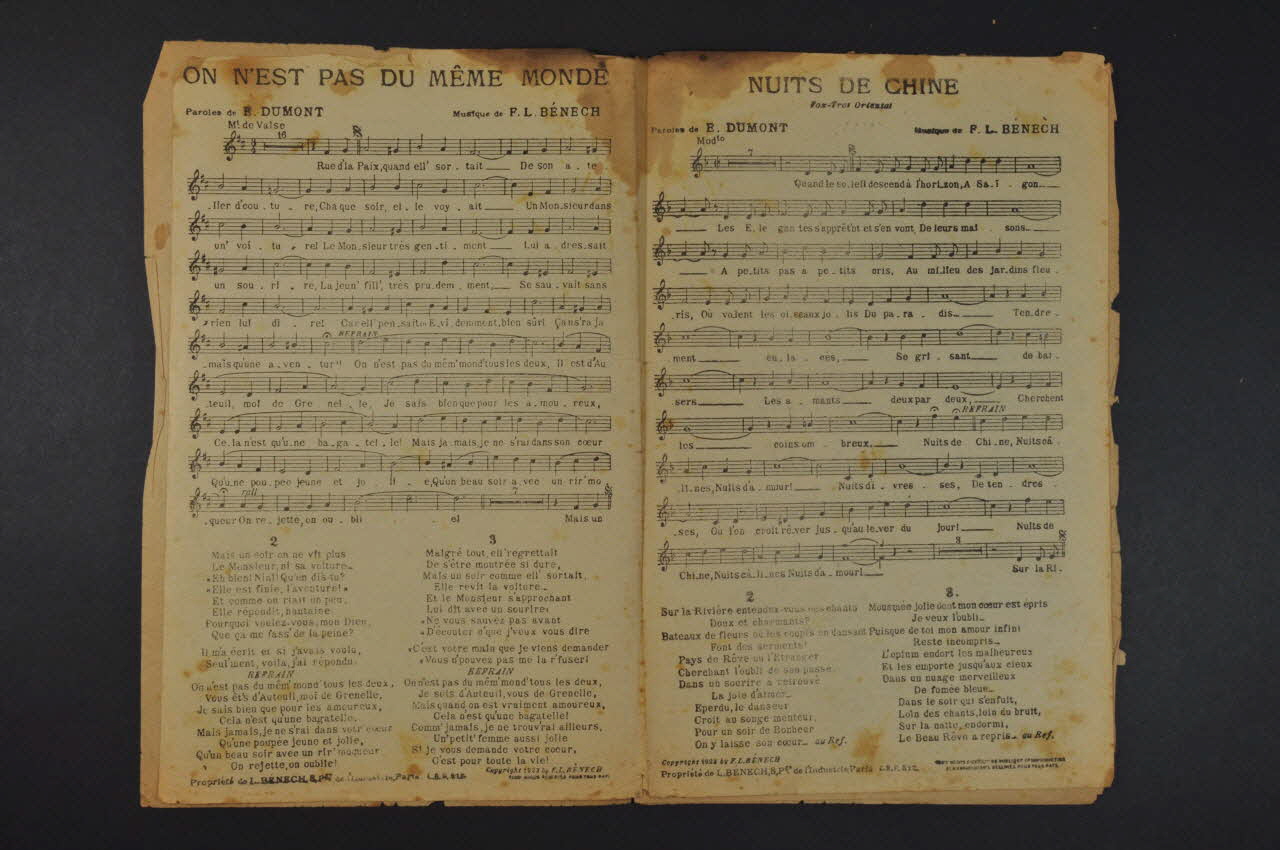 ON N'EST PAS DU MÊME MONDE
Paroles de E. DUMONT Musique de F. L. BÉNECH
Mt de Valse
16
Rue d'la Paix, quand ell' sor - tait De son a - te
- lier d'cou - tu - re, Cha que soir, el - le voy - ait Un Mon.sieur dans
un' voi - tu - re! Le Mon.sieur très gen - ti - ment Lui a - dres.sait
un sou - ri - re, La jeun' fill', très pru . dem - ment, Se sau - vait sans
rien lui di - re! Car ell' pen . sait: « E . vi . demment, bien sûr! Ça n's'ra ja
REFRAIN
- mais qu'une a - ven - tur'! On n'est pas du mêm' mond' tous les deux, Il est d'Au
- teuil, moi de Gre nel - le, Je sais bien que pour les a - mou - reux,
Ce . la n'est qu'u . ne ba - ga - tel - le! Mais ja . mais je ne s'rai dans son cœur
Qu'u . ne pou . pée jeune et jo - li - e, Qu'un beau soir a . vec un rir' mo
rall
7
- queur On re - jette, on ou - bli - e! Mais un
2
Mais un soir on ne vit plus
Le Monsieur, ni sa voiture_
«Eh bien! Nini! Qu'en dis-tu?
«Elle est finie, l'aventure!»
Et comme on riait un peu,
Elle répondit, hautaine:
Pourquoi voulez-vous, mon Dieu,
Que ça me fass' de la peine?
Il m'a écrit et si j'avais voulu,
Seul'ment, voilà, j'ai répondu:
REFRAIN
On n'est pas du mêm' mond' tous les deux,
Vous êt's d'Auteuil, moi de Grenelle,
Je sais bien que pour les amoureux,
Cela n'est qu'une bagatelle.
Mais jamais, je ne s'rai dans votr' cœur
Qu'une poupée jeune et jolie,
Qu'un beau soir avec un rir' moqueur
On rejette, on oublie!
3
Malgré tout, ell' regrettait
De s'être montrée si dure,
Mais un soir comme ell' sortait,
Elle revit la voiture_
Et le Monsieur s'approchant
Lui dit avec un sourire:
«Ne vous sauvez pas avant
«D'écouter c'que j'veux vous dire
«C'est votre main que je viens demander
«Vous n'pouvez pas me la r'fuser!
REFRAIN
On n'est pas du mêm' mond' tous les deux,
Je suis d'Auteuil, vous de Grenelle,
Mais quand on est vraiment amoureux,
Cela n'est qu'une bagatelle!
Comm' jamais, je ne trouv'rai ailleurs,
Un' petit' femme aussi jolie
Si je vous demande votre cœur,
C'est pour toute la vie!
Copyright 1923 by F. L. BÉNECH
Propriété de L. BENECH, 8, Pge de l'Industrie, Paris
NUITS DE CHINE
Fox-Trot Oriental
Paroles de E. DUMONT Musique de F. L. BENECH
Modto
7
Quand le so . leil descend à l'hori . zon, A Sa . ï - gon
Les E . lé gan tes s'apprêt'nt et s'en vont De leurs mai - sons
A pe . tits pas a pe - tits cris, Au mi . lieu des jar . dins fleu -
- ris, Où volent les oi . seaux jo - lis Du pa - ra - dis Ten . dre -
ment en . la - cés, Se gri - sant de bai -
sers Les a - mants deux par deux, Cherchent
REFRAIN
les coins om - breux, Nuits de Chi . ne, Nuits câ -
- li . nes, Nuits d'a - mour! Nuits d'i - vres - ses, De ten . dres -
- ses, Où l'on croit rê . ver jus - qu'au le . ver du jour! Nuits de
3
Chi . ne, Nuits câ . li . nes Nuits d'a - mour! Sur la Ri -
2
Sur la Rivière entendez-vous ces chants
Doux et charmants?
Bateaux de fleurs où les coupl's en dansant
Font des serments!
Pays de Rêve où l'Etranger
Cherchant l'oubli de son passé
Dans un sourire a retrouvé
La joie d'aimer_
Eperdu, le danseur
Croit au songe menteur,
Pour un soir de Bonheur
On y laisse son cœur_ au Ref.
3.
Mousmée jolie dont mon cœur est épris
Je veux l'oubli_
Puisque de toi mon amour infini
Reste incompris_
L'opium endort les malheureux
Et les emporte jusqu'aux cieux
Dans un nuage merveilleux
De fumée bleue_
Dans le soir qui s'enfuit,
Loin des chants, loin du bruit,
Sur la natte, endormi,
Le Beau Rêve a repris_ au Ref.
Copyright 1922 by F. L. BÉNECH
Propriété de L. BENECH, 8, Pge de l'Industrie, Paris